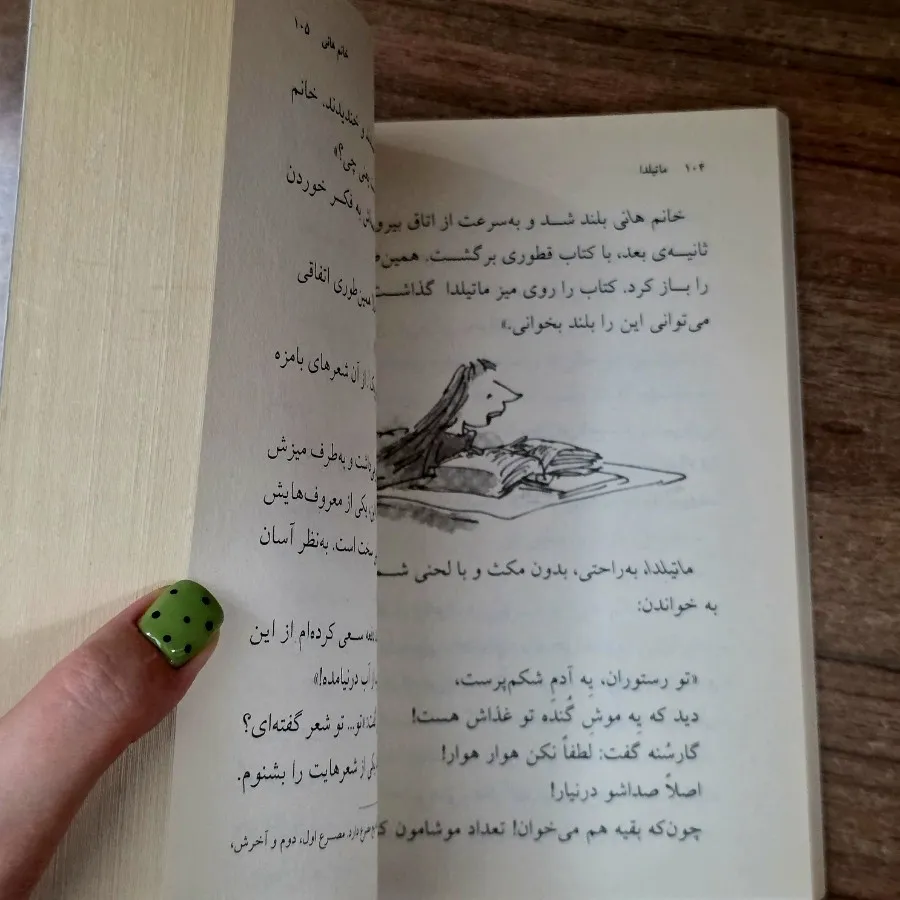 ۱۰۴ ماتیلدا
خانم هانی بلند شد و به‌سرعت از اتاق
ثانیه‌ی بعد، با کتاب قطوری برگشت.
را باز کرد. کتاب را روی میز ماتیلدا
می‌توانی این را بلند بخوانی.»
ماتیلدا، به‌راحتی، بدون مکث و با لحنی
به خواندن:
«تو رستوران، یِه آدمِ شکم‌پرست،
دید که یِه موشِ گُنده تو غذاش هست!
گارسُنه گفت: لطفاً نکن هوار هوار!
اصلاً صداشو درنیار!
چون‌که بقیه هم می‌خوان! تعداد موشامون
خانم هانی ۱۰۵
و خندیدند. خانم
چی؟»
به فکر خوردن
همین‌طوری اتفاقی
از آن شعرهای بامزه
و به‌طرف میزش
یکی از معروف‌هایش
سخت است. به‌نظر آسان
سعی کرده‌ام از این
آب درنیامده!»
تو... تو شعر گفته‌ای؟
از شعرهایت را بشنوم.
دارد. مصرع اول، دوم و آخرش،